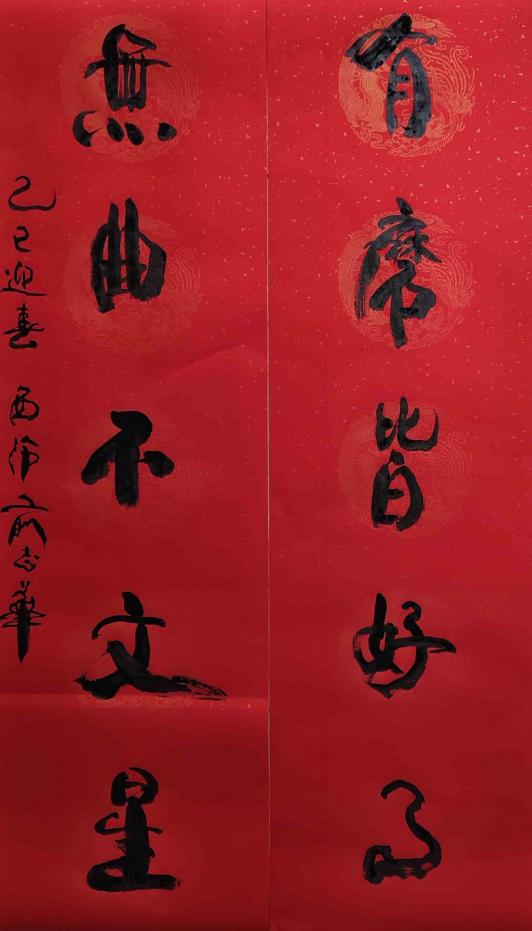 有席皆好
無曲不文星
乙巳迎春 西泠俞志華